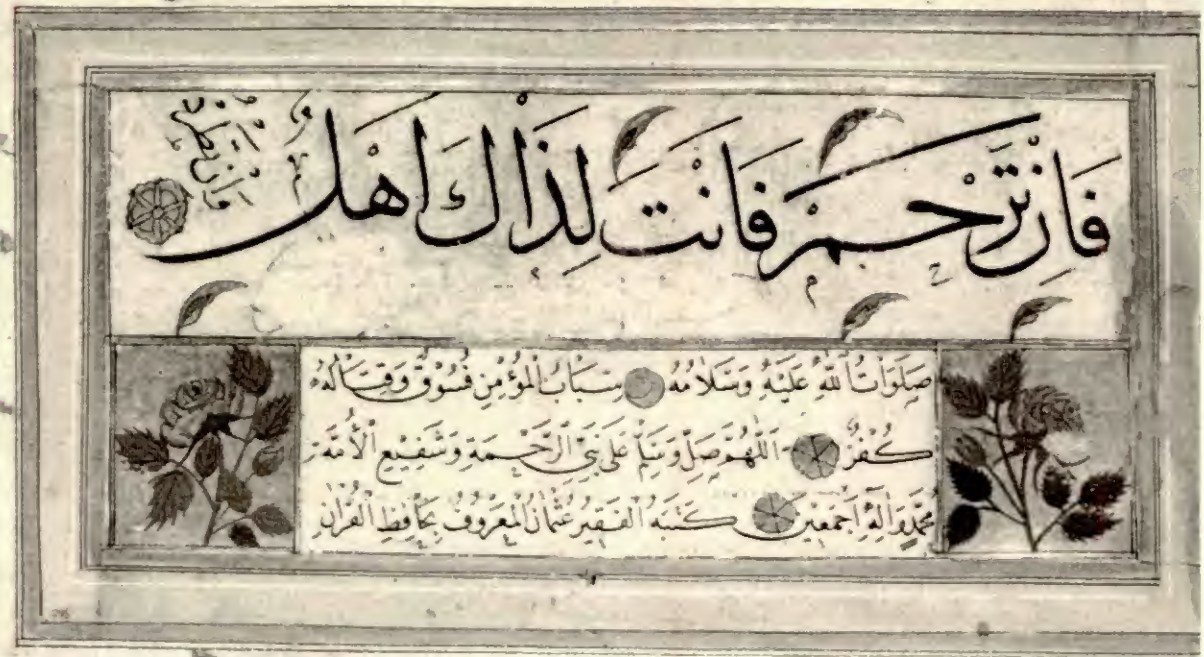 فَاِنْ تَرْحَمْ فَاَنْتَ لِذَاكَ اَهْلٌ
وَاِنْ تَطْرُدْ
صَلَوَاتُ اللّٰهِ عَلَيْهِ وَسَلَامُهُ سِبَابُ الْمُؤْمِنِ فُسُوقٌ وَقِتَالُهُ
كُفْرٌ اَللّٰهُمَّ صَلِّ وَسَلِّمْ عَلٰى نَبِيِّ الرَّحْمَةِ وَشَفِيعِ الْاُمَّةِ
مُحَمَّدٍ وَاٰلِهِ اَجْمَعِينَ كَتَبَهُ الْفَقِيرُ عُثْمَانُ الْمَعْرُوفُ بِحَافِظِ الْقُرْاٰنِ